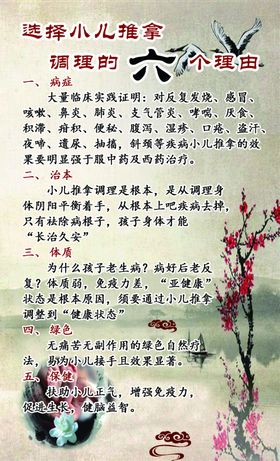 选择小儿推拿
调理的六个理由
一、病症
大量临床实践证明：对反复发烧、感冒、
咳嗽、鼻炎、肺炎、支气管炎、哮喘、厌食、
积滞、疳积、便秘、腹泻、湿疹、口疮、盗汗、
夜啼、遗尿、抽搐，斜颈等疾病小儿推拿的效
果要明显强于服中药及西药治疗。
二、治本
小儿推拿调理是根本，是从调理身
体阴阳平衡着手，从根本上吧疾病去掉，
只有祛除病根子，孩子身体才能
“长治久安”
三、体质
为什么孩子老生病？病好后老反
复？体质弱，免疫力差，“亚健康”
状态是根本原因，须要通过小儿推拿
调整到“健康状态”
四、绿色
无痛苦无副作用的绿色自然疗
法，易为小儿接手且效果显著。
五、保健
扶助小儿正气，增强免疫力，
促进生长，健脑益智。